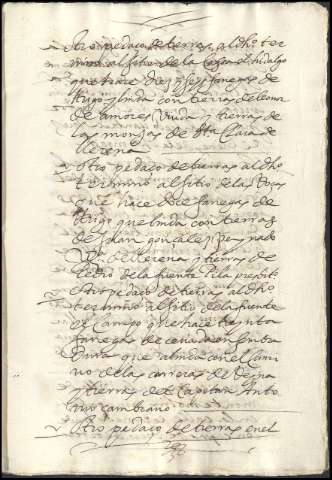 Otro pedaço de tierras al dho ter
mino al sitio de la Caza el hidalgo
que hace diez y seis fanegas de
trigo y linda con tierras de leonor
de amores Viuda y tierras de
las monjas de Sta Clara de
llerena
Otro pedaço de tierras al dho
termino al sitio de las Pocas
que hace doce fanegas de
trigo que linda con tierras
de Juan gonzalez Peynado
Vo de llerena y tierras de
Pedro de la fuente Pila
Otro pedaço de tierras al dho
termino al sitio de la fuente
el Campo que hace treynta
fanegas de cevada en
que alinda con el Cami
no de las carreras de Reyna
y tierras del Capitan Anto
nio Zambrano
Otro pedaço de tierras en el